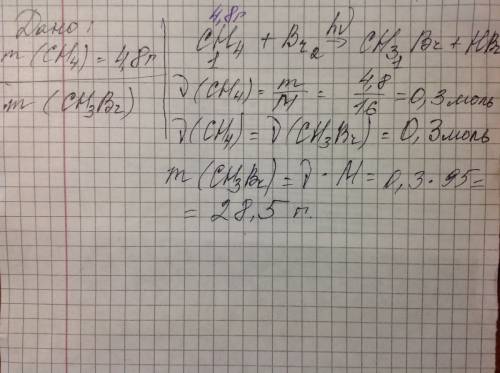 Дано:
m (CH4) = 4,8г
m (CH3Br)
4,8г
CH4 + Br2 hν→ CH3Br + HBr
1 1
ν(CH4) = m/M = 4,8/16 = 0,3моль
ν(CH4) = ν(CH3Br) = 0,3моль
m (CH3Br) = ν · M = 0,3 · 95 =
= 28,5 г.